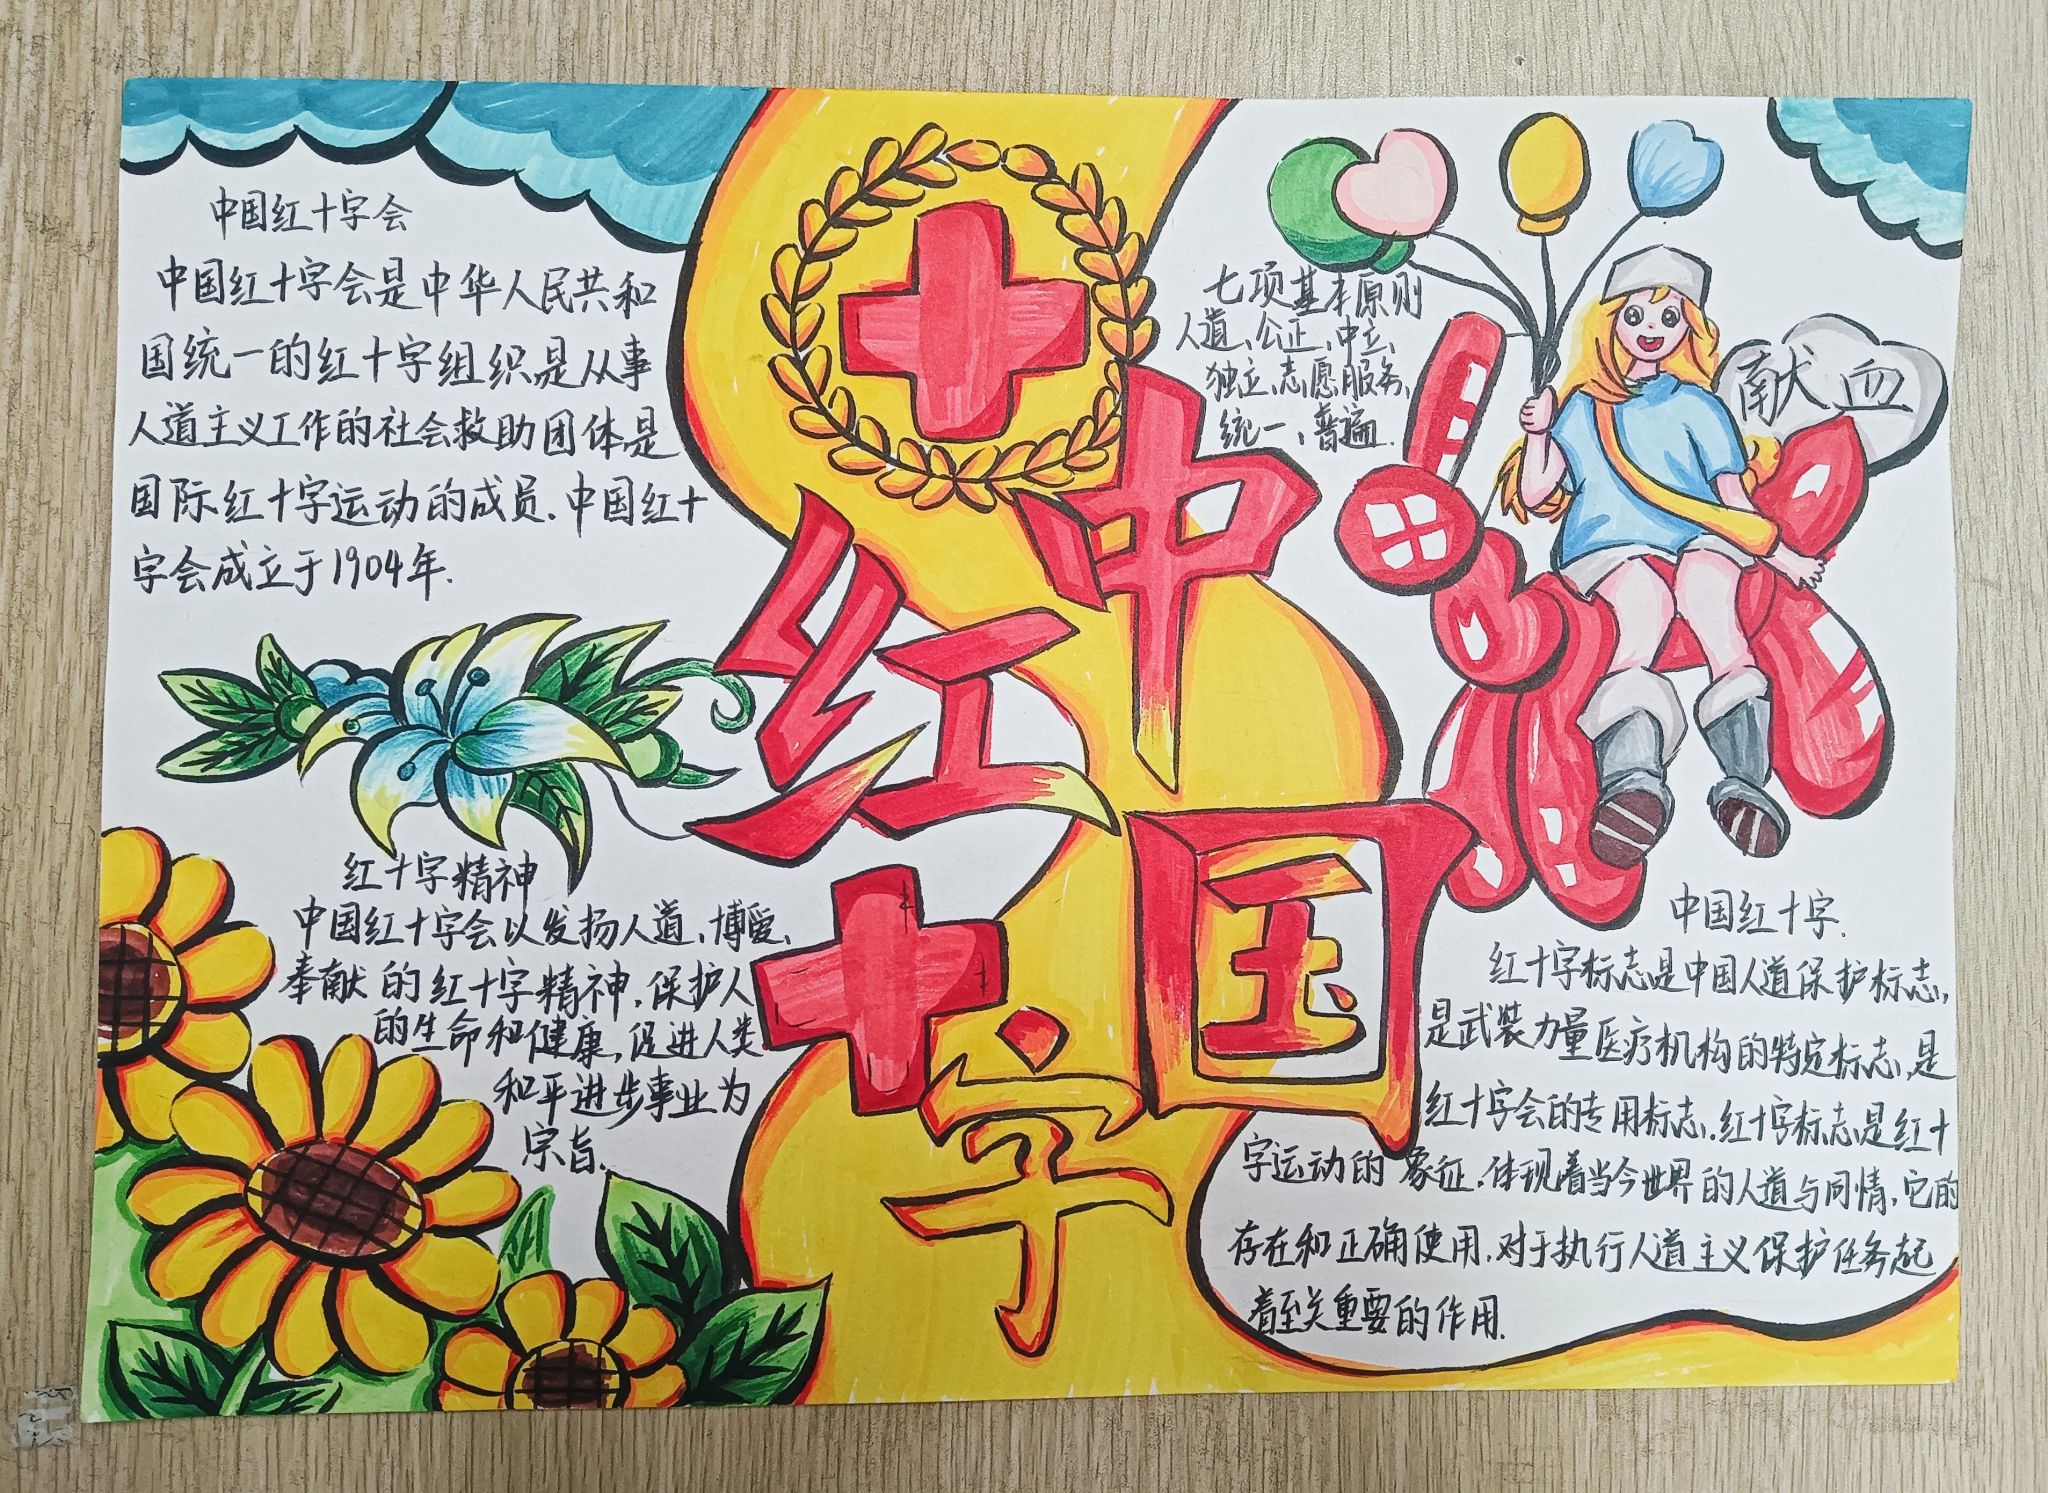 中国红十字会
中国红十字会是中华人民共和
国统一的红十字组织是从事
人道主义工作的社会救助团体是
国际红十字运动的成员.中国红十
字会成立于1904年.
中
国
红
十
字
七项基本原则
人道、公正、中立、
独立、志愿服务、
统一、普遍.
献血
红十字精神
中国红十字会以发扬人道、博爱、
奉献的红十字精神,保护人
的生命和健康,促进人类
和平进步事业为
宗旨.
中国红十字.
红十字标志是中国人道保护标志,
是武装力量医疗机构的特定标志,是
红十字会的专用标志.红十字标志是红十
字运动的象征,体现着当今世界的人道与同情,它的
存在和正确使用,对于执行人道主义保护任务起
着至关重要的作用.